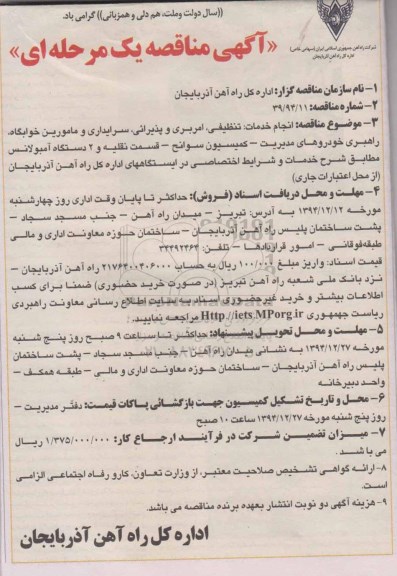 ((سال دولت وملت، هم دلی و همزبانی)) گرامی باد.
شرکت راه آهن جمهوری اسلامی ایران (سهامی خاص)
اداره کل راه آهن آذربایجان
«آگهی مناقصه یک مرحله ای»
۱- نام سازمان مناقصه گزار: اداره کل راه آهن آذربایجان
۲- شماره مناقصه: ۳۹/۹۴/۱۱
۳- موضوع مناقصه: انجام خدمات: تنظیفی، امربری و پذیرائی، سرایداری و مامورین خوابگاه،
راهبری خودروهای مدیریت – کمیسیون سوانح – قسمت نقلیه و ۲ دستگاه آمبولانس
مطابق شرح خدمات و شرایط اختصاصی در ایستگاههای اداره کل راه آهن آذربایجان
(از محل اعتبارات جاری)
۴- مهلت و محل دریافت اسناد (فروش): حداکثر تا پایان وقت اداری روز چهارشنبه
مورخه ۱۳۹۴/۱۲/۱۲ به آدرس: تبریز – میدان راه آهن – جنب مسجد سجاد –
پشت ساختمان پلیس راه آهن آذربایجان – ساختمان حوزه معاونت اداری و مالی
طبقه‌فوقانی – امور قراردادها – تلفن: ۳۴۴۹۲۳۶۲
قیمت اسناد: واریز مبلغ ۱۰۰/۰۰۰ ریال به حساب ۲۱۷۶۴۰۰۴۰۶۰۰۰ راه آهن آذربایجان –
نزد بانک ملی شعبه راه آهن تبریز (در صورت خرید حضوری) ضمنا برای کسب
اطلاعات بیشتر و خرید غیرحضوری اسناد به سایت اطلاع رسانی معاونت راهبردی
ریاست جمهوری Http://iets.MPorg.ir مراجعه نمایید.
۵- مهلت و محل تحویل پیشنهاد: حداکثر تا ساعت ۹ صبح روز پنج شنبه
مورخه ۱۳۹۴/۱۲/۲۷ به نشانی میدان راه آهن – جنب مسجد سجاد – پشت ساختمان
پلیس راه آهن آذربایجان – ساختمان حوزه معاونت اداری و مالی – طبقه همکف –
واحد دبیرخانه
۶- محل و تاریخ تشکیل کمیسیون جهت بازگشائی پاکات قیمت: دفتر مدیریت –
روز پنج شنبه مورخه ۱۳۹۴/۱۲/۲۷ ساعت ۱۰ صبح
۷- میزان تضمین شرکت در فرآیند ارجاع کار: ۱/۳۷۵/۰۰۰/۰۰۰ ریال
می باشد.
۸- ارائه گواهی تشخیص صلاحیت معتبر، از وزارت تعاون، کار و رفاه اجتماعی الزامی
است.
۹- هزینه آگهی دو نوبت انتشار بعهده برنده مناقصه می باشد.
اداره کل راه آهن آذربایجان